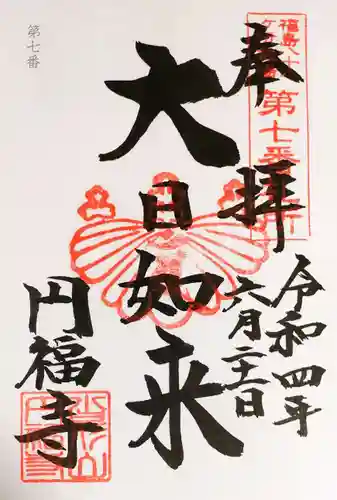 第七番
奉拝
福島八十八ヶ所
第七番
大日如来
令和四年
六月二十二日
円福寺